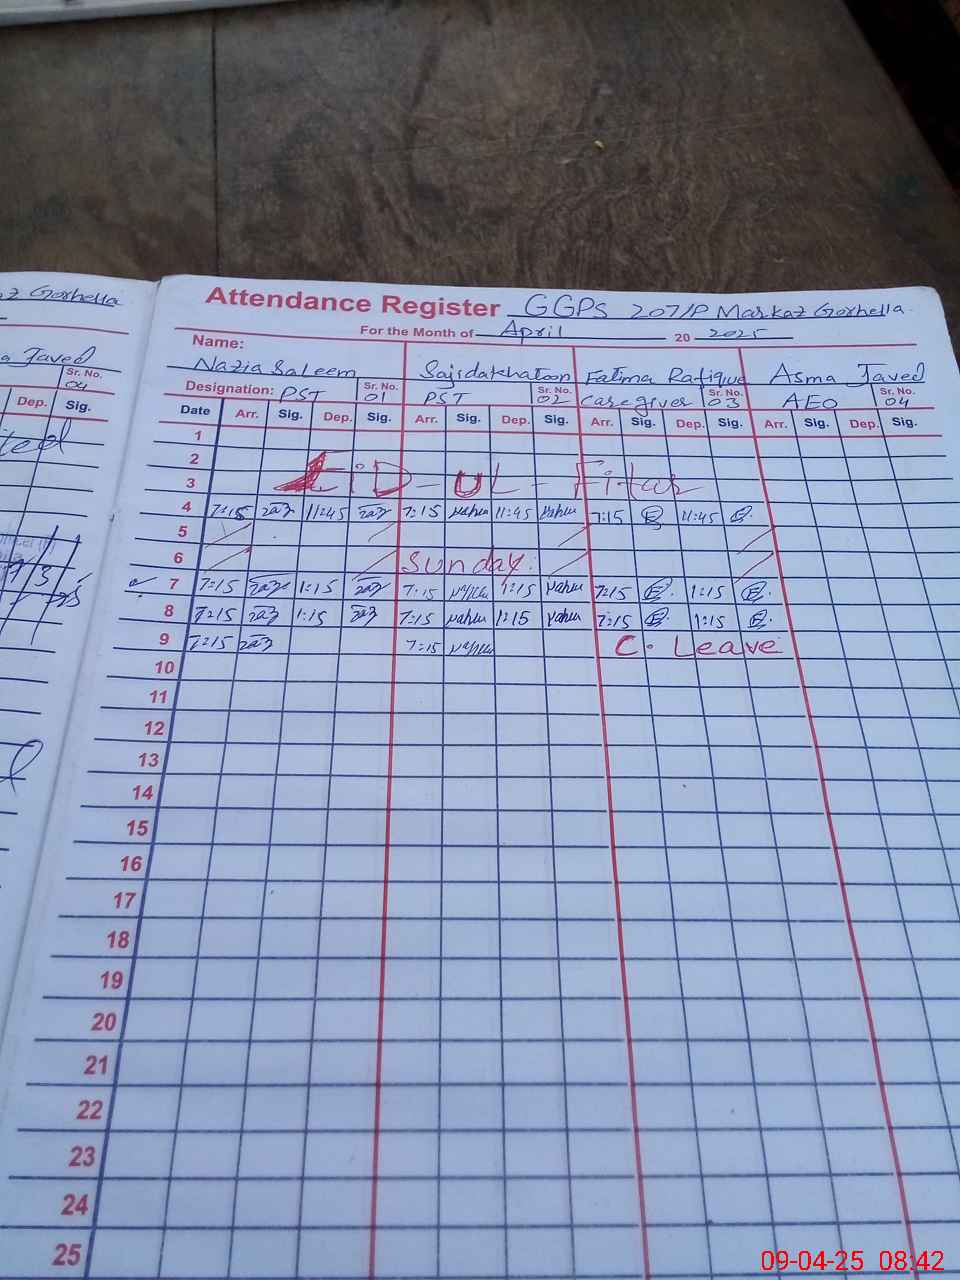 Gorhella
Attendance Register GGPS 207/P Markaz Gorhella
For the Month of April 20 2025
Name:
Nazia Saleem Sajsdakhatoon Fatima Rafique Asma Javed
Designation: PST Sr. No. 01 PST Sr. No. 02 caregiver Sr. No. 03 AEO Sr. No. 04
Date Arr. Sig. Dep. Sig. Arr. Sig. Dep. Sig. Arr. Sig. Dep. Sig. Arr. Sig. Dep. Sig.
Javed
Sr. No.
04
Dep. Sig.
1
2
3 EiD - UL - Fitar
4 7:15 11:45 7:15 11:45 7:15 11:45
5
6 Sunday.
7 7:15 1:15 7:15 1:15 7:15 1:15
8 7:15 1:15 7:15 1:15 7:15 1:15
9 7:15 7:15 C. Leave
10
11
12
13
14
15
16
17
18
19
20
21
22
23
24
25
09-04-25 08:42